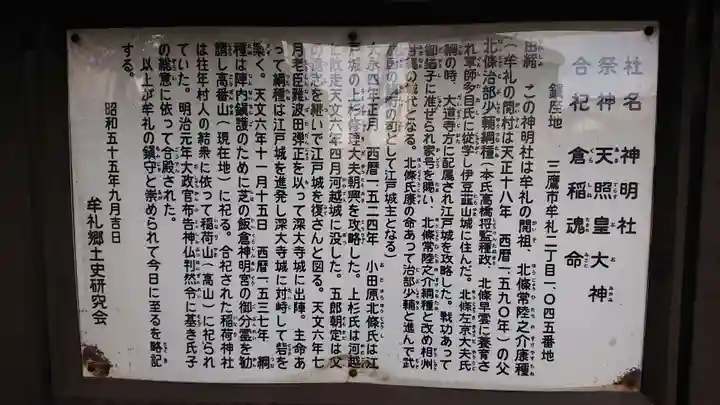 社名 神明社
祭神 天照皇大神
合祀 倉稲魂命
鎮座地 三鷹市牟礼二丁目一〇四五番地
由緒 この神明社は牟礼の開祖、北條常陸之介康種
(牟礼の開村は天正十八年 西暦一五九〇年)の父
北條治部少輔綱種(本氏高橋将監種政、北條早雲に養育さ
れ軍師多目氏に従学し伊豆韮山城に住んだ。北條左京大夫氏
綱の時、大道寺方に配属され江戸城を攻略した。戦功あって
御猶子に准ぜられ家号を賜い、北條常陸之介綱種と改め相州
の城代となる。北條氏康の命あって治部少輔と進んで武
の司として江戸城主となる)
大永四年正月 西暦一五二四年 小田原北條氏は江
戸城の上杉修理大夫朝興を攻略した。上杉氏は河越
に敗走天文六年四月河越城に没した。五郎朝定は父
の遺志を継いで江戸城を復さんと図る。天文六年七
月老臣難波田弾正を以って深大寺城に出陣。主命あ
って綱種は江戸城を進発し深大寺城に対峙して砦を
築く。天文六年十一月十五日 西暦一五三七年 綱
種は陣内鎮護のために芝の飯倉神明宮の御分霊を勧
請し高番山(現在地)に祀る。合祀された稲荷神社
は往年村人の結衆に依って稲荷山(高山)に祀られ
ていた。明治元年大政官布告神仏判然令に基き氏子
の総意に依って合殿された。
以上が牟礼の鎮守と崇められて今日に至るを略記
する。
昭和五十五年九月吉日
牟礼郷土史研究会